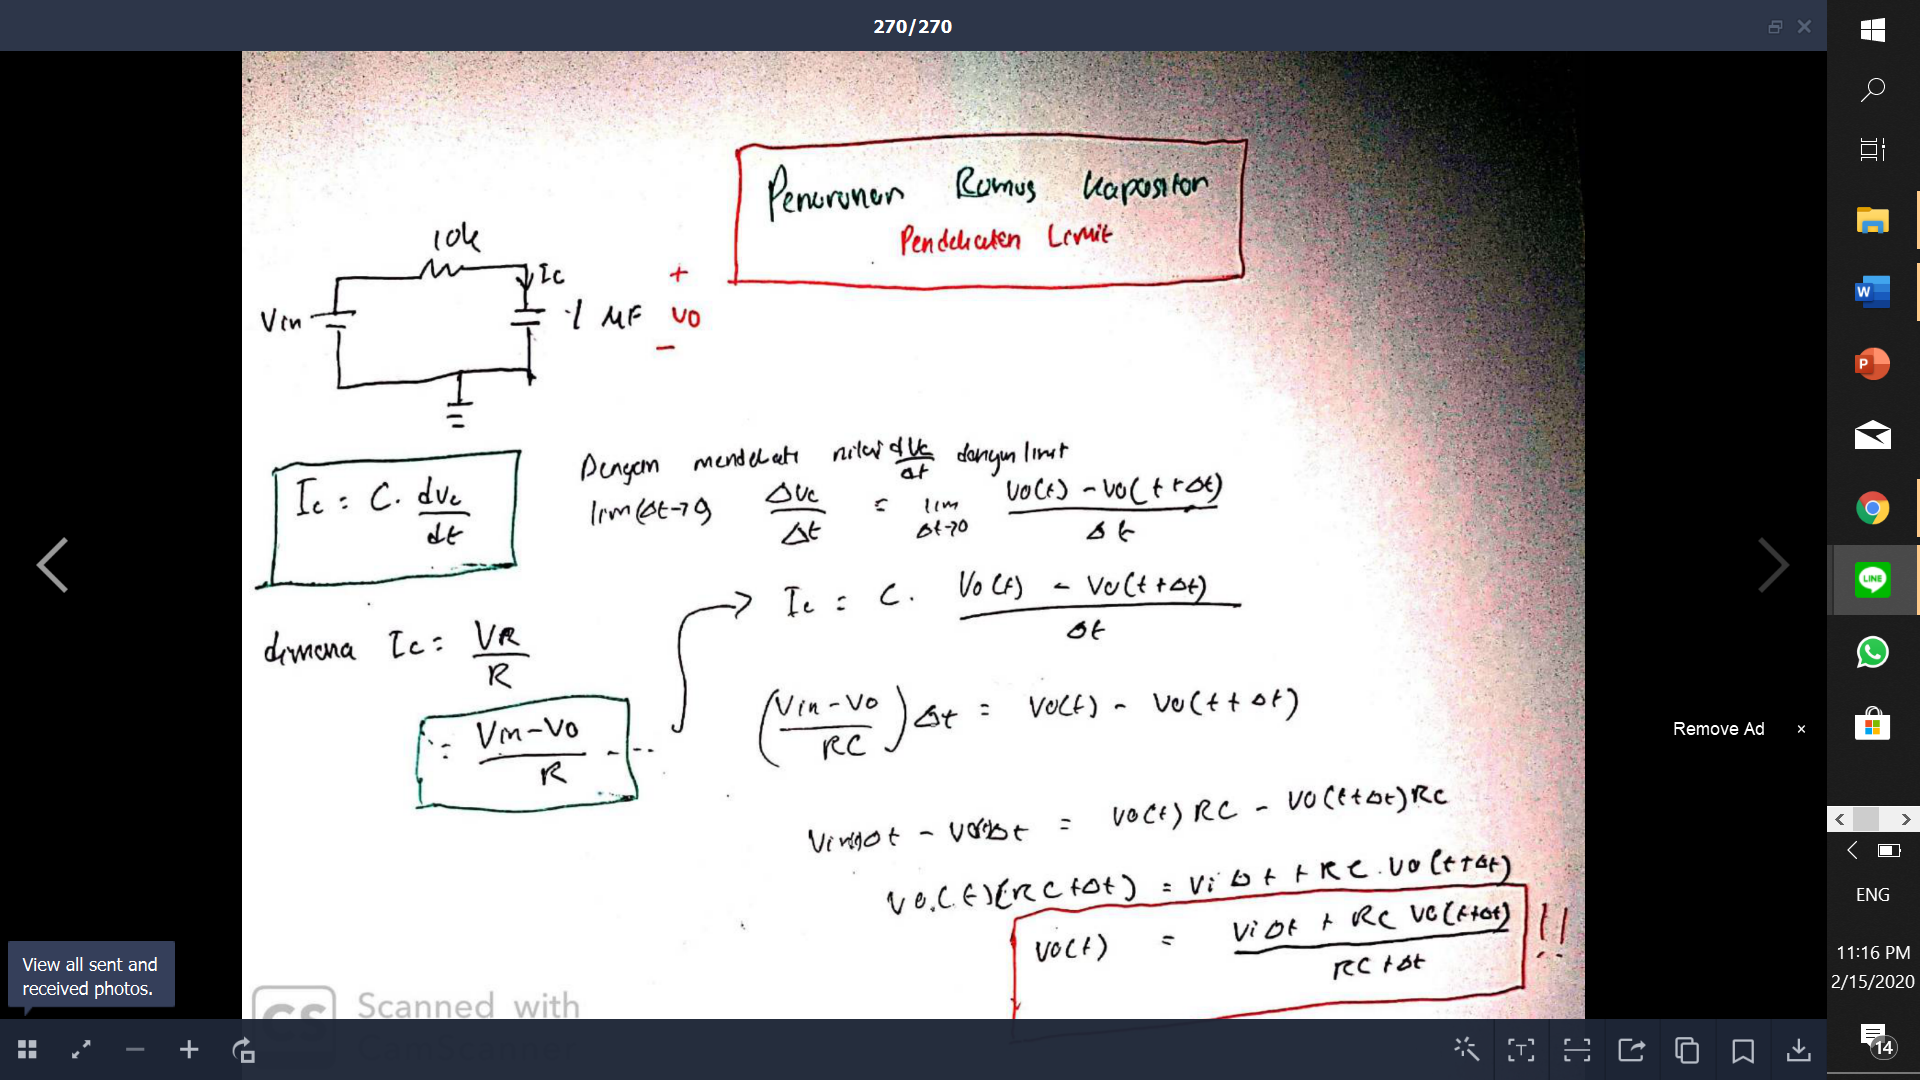 270/270
Penurunan Rumus Kapasitor
Pendekatan Limit
10k
Ic
Vin
1 MF
+
Vo
-
Ic = C. dVc/dt
Dengan mendekati nilai dVc/dt dengan limit
lim(Δt→0) ΔVc/Δt = lim Δt→0 Vo(t) - Vo(t+Δt)/Δt
Ic = C. Vo(t) - Vo(t+Δt)/Δt
dimana Ic = VR/R
= Vin-Vo/R
(Vin-Vo/RC)Δt = Vo(t) - Vo(t+Δt)
Vin Δt - Vo Δt = Vo(t) RC - Vo(t+Δt) RC
Vo(t)(RC+Δt) = Vi Δt + RC.Vo(t+Δt)
Vo(t) = Vi Δt + RC Vo(t+Δt)/RC+Δt !!
Remove Ad ×
View all sent and
received photos.
CS Scanned with
CamScanner
W
P
LINE
ENG
11:16 PM
2/15/2020
14